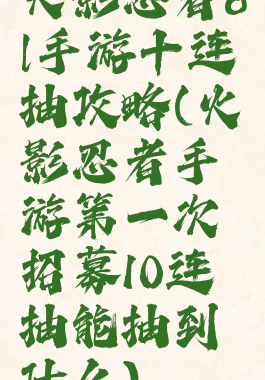 火影忍者o
l手游十连
抽攻略(火
影忍者手
游第一次
招募10连
抽能抽到
什么)